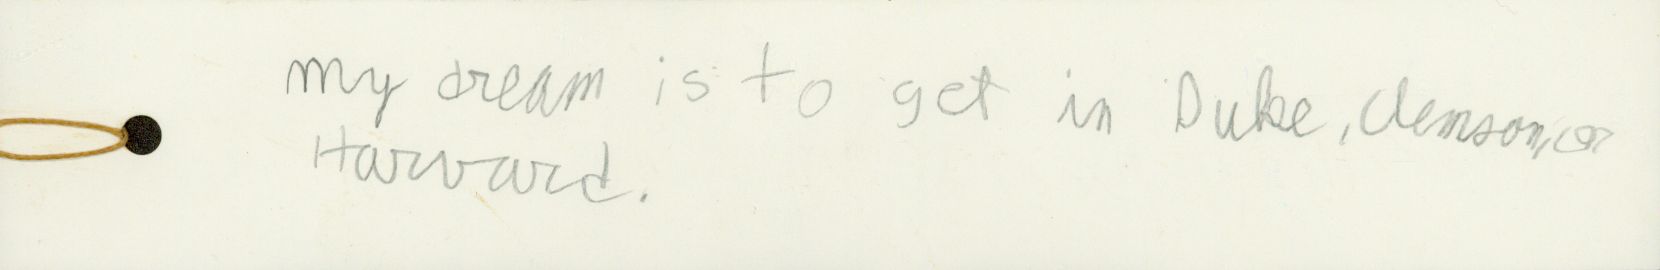 my dream is to get in Duke, Clemson, or
Harvard.